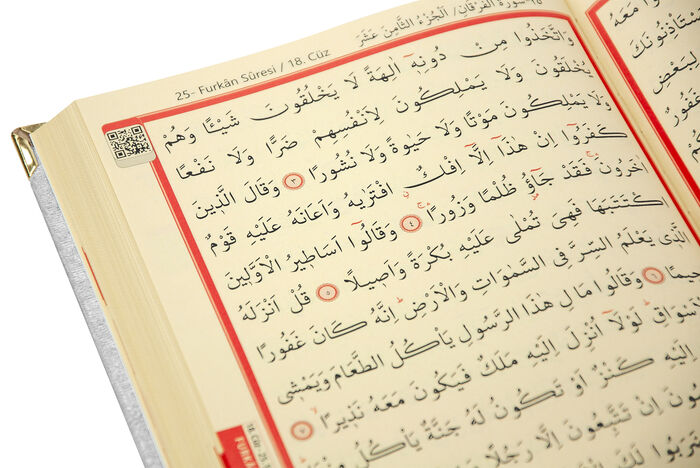 25- Furkân Sûresi / 18. Cüz
سورة الفرقان / الجزء الثامن عشر
وَاتَّخَذُوا مِنْ دُونِهٖٓ اٰلِهَةً لَا يَخْلُقُونَ شَيْـًٔا وَهُمْ
يُخْلَقُونَ وَلَا يَمْلِكُونَ لِاَنْفُسِهِمْ ضَرًّا وَلَا نَفْعًا
وَلَا يَمْلِكُونَ مَوْتًا وَلَا حَيٰوةً وَلَا نُشُورًا ﴿٣﴾ وَقَالَ الَّذٖينَ
كَفَرُٓوا اِنْ هٰذَٓا اِلَّٓا اِفْكٌ افْتَرٰيهُ وَاَعَانَهُ عَلَيْهِ قَوْمٌ
اٰخَرُونَ فَقَدْ جَٓاؤُ ظُلْمًا وَزُورًا ﴿٤﴾ وَقَالُٓوا اَسَاطٖيرُ الْاَوَّلٖينَ
اكْتَتَبَهَا فَهِيَ تُمْلٰى عَلَيْهِ بُكْرَةً وَاَصٖيلًا ﴿٥﴾ قُلْ اَنْزَلَهُ
الَّذٖي يَعْلَمُ السِّرَّ فِي السَّمٰوَاتِ وَالْاَرْضِ اِنَّهُ كَانَ غَفُورًا
ﻴمًا ﴿٦﴾ وَقَالُوا مَالِ هٰذَا الرَّسُولِ يَأْكُلُ الطَّعَامَ وَيَمْشٖي
لَوْلَٓا اُنْزِلَ اِلَيْهِ مَلَكٌ فَيَكُونَ مَعَهُ نَذٖيرًا ﴿٧﴾
اِلَيْهِ كَنْزٌ اَوْ تَكُونُ لَهُ جَنَّةٌ يَأْكُلُ
اِنْ تَتَّبِعُونَ اِلَّا رَجُلًا
مَعَهُ
لِبَعْضِ